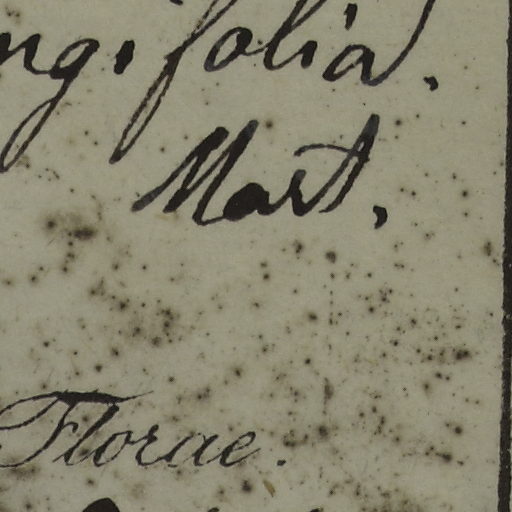 ngifolia.
Mart.
Florae.